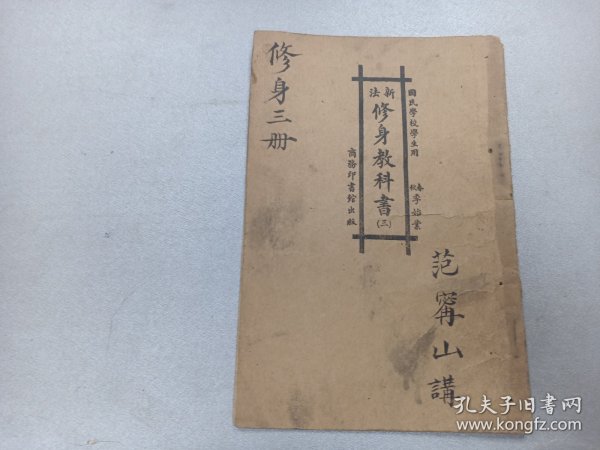 國民學校學生用
春秋季始業
新法
修身教科書(三)
商務印書館出版
修身三册
范甯山講
孔夫子旧書网
www.kongfz.com